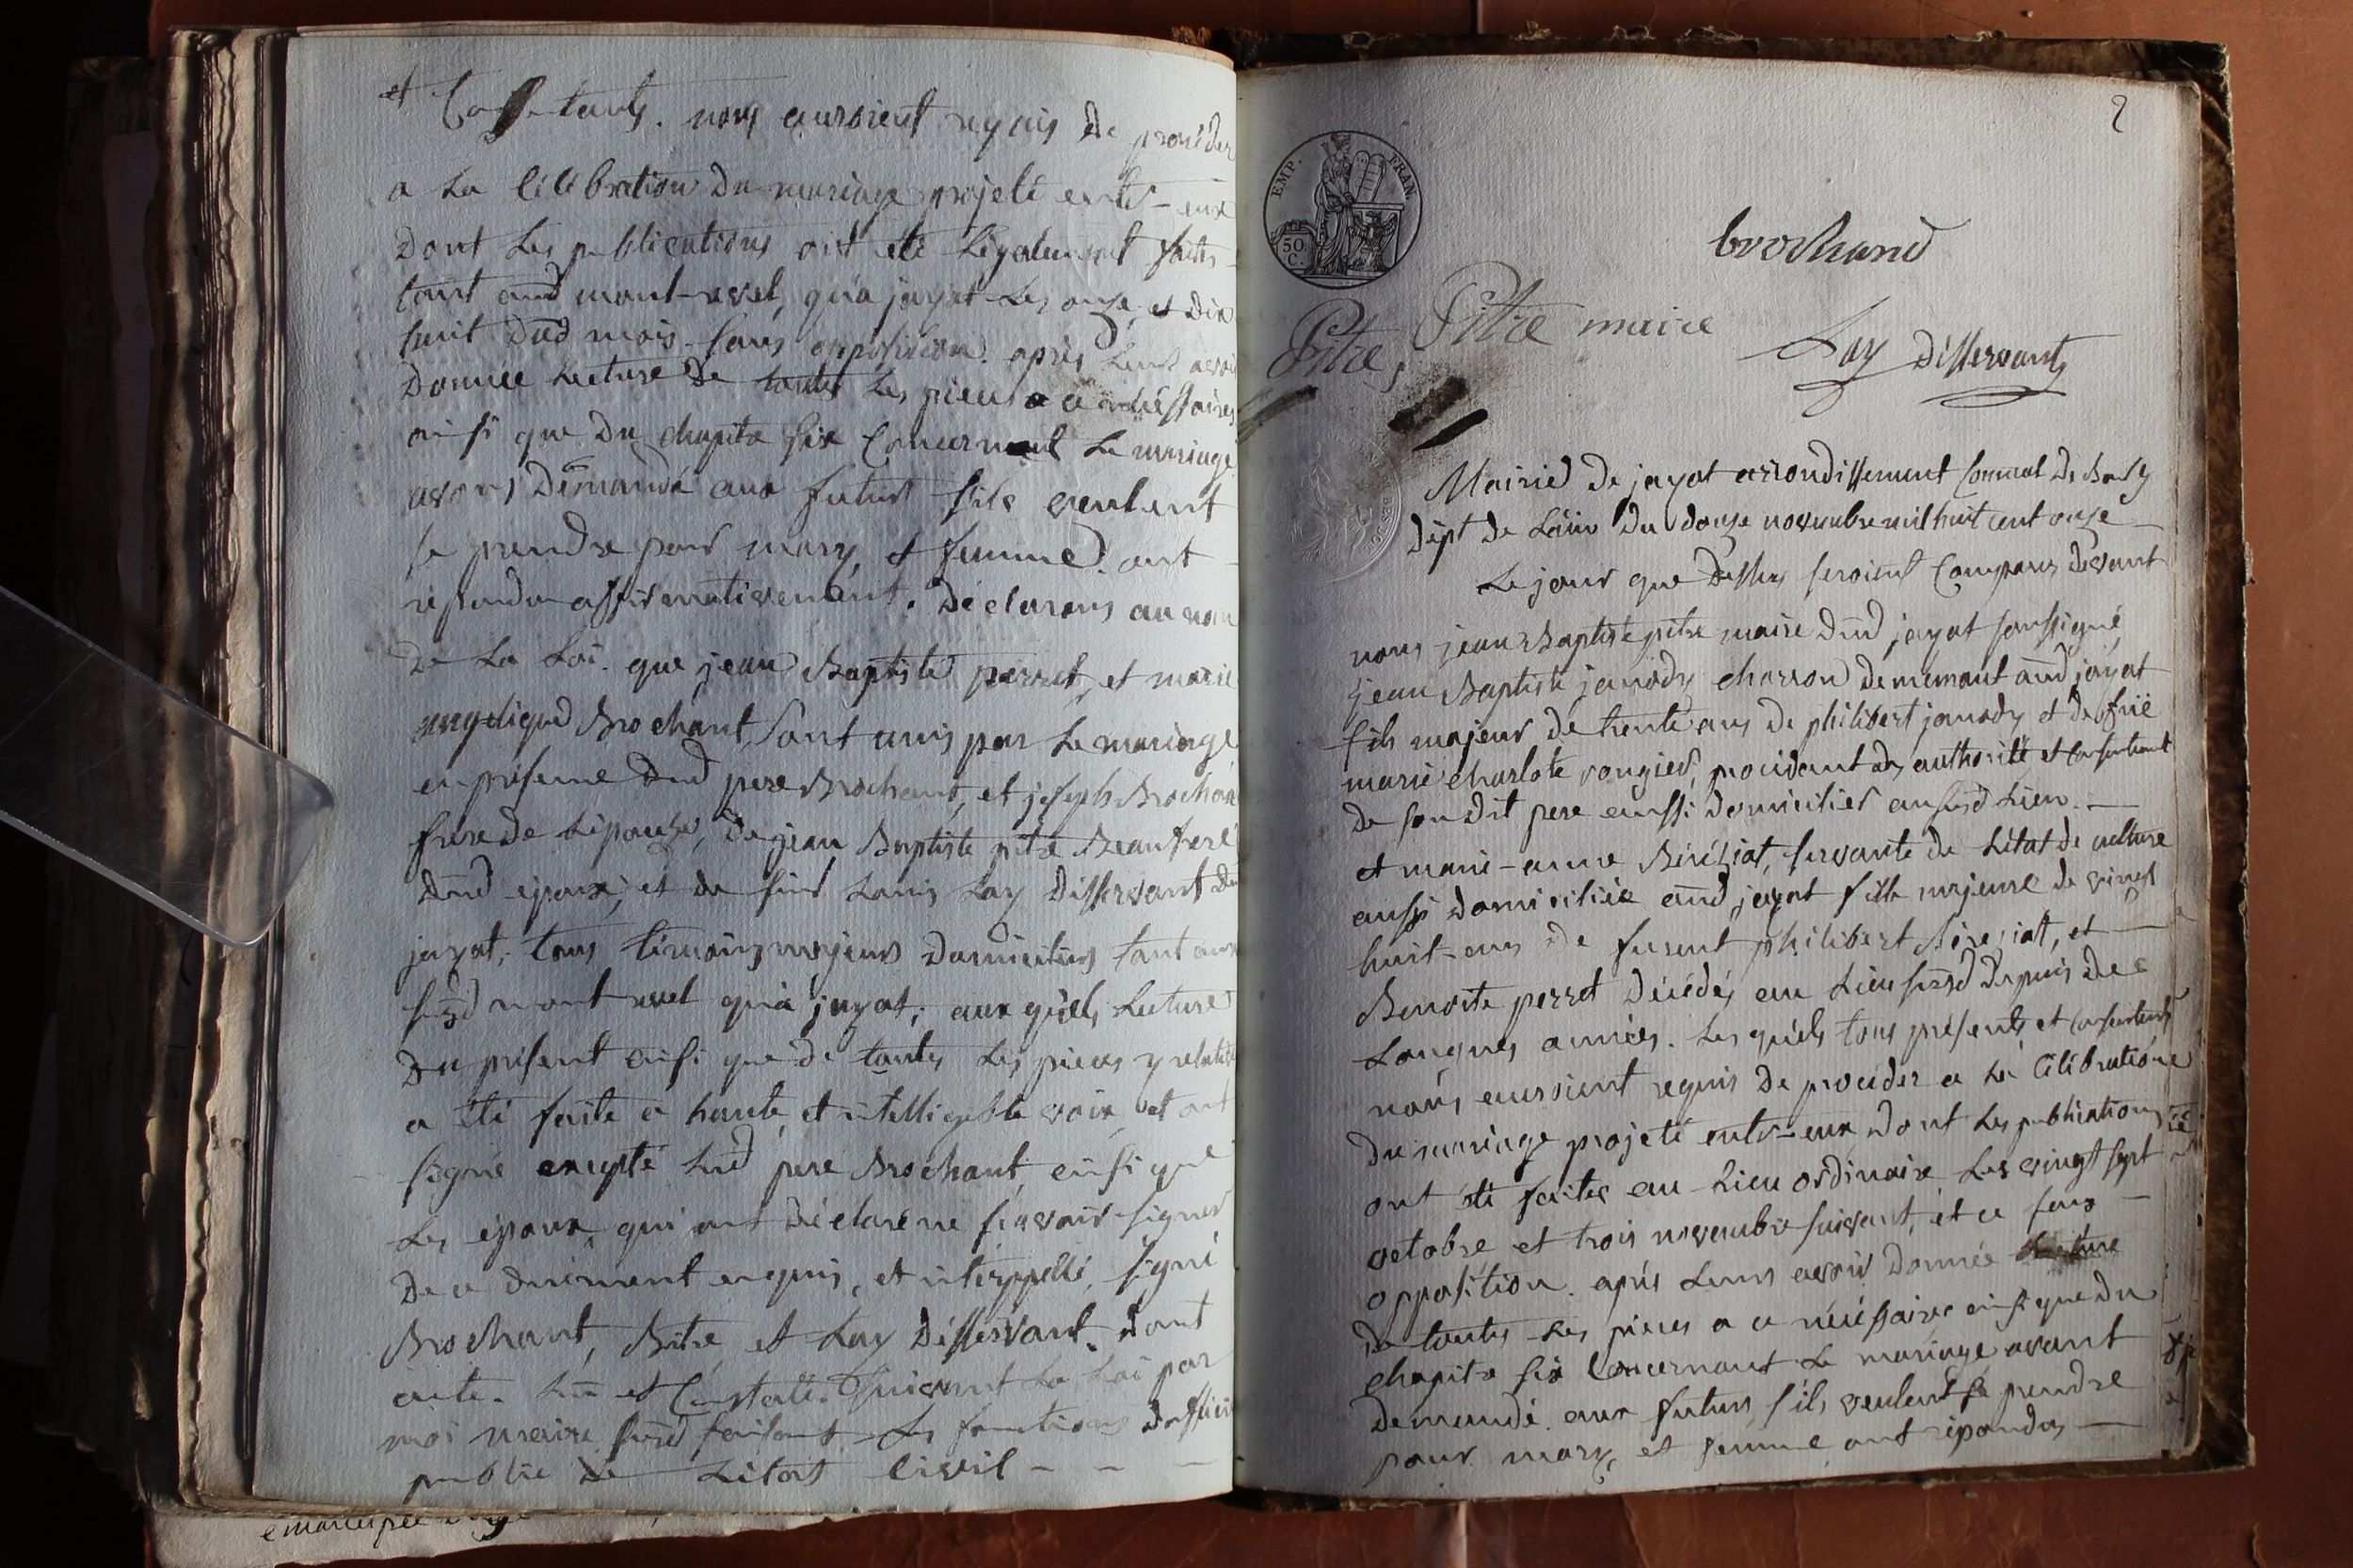 et Consentants. nous auroient requis de procéder
a La Célébration du mariage projeté entr-eux
dont Les publications ont eté Légalement faites
tant aud mont-revel, qu'a jayat Les onze, et dix
huit dud mois sans opposition. après Leurs avoir
donnée Lecture de toutes Les pieces a ce nécéssaires
ainsi que du chapitre six Concernent Le mariage
avons demandé aux futurs s'ils veulent
se prendre pour mary, et femme. ont
répondu affirmativement. Déclarons au nom
De La Loi. que jean Baptiste perret, et marie
angelique Brochant, sont unis par Le mariage
en présence dud pere Brochant, et joseph Brochant
frere de Lépouse, de jean Baptiste pitre Beaufrere
dud epoux, et de sieur Louis Lay Désservant de
jayat, tous témoins majeurs domiciliés tant aux
susd mont revel qu'à jayat; aux quels Lecture
du présent ainsi que de toutes Les pieces y relatives
a été faite a haute, et intelligeble voix, et ont
signé excepté Led pere Brochant, ainsi que
Les epoux, qui ont déclaré ne sçavoir signer
de ce duëment enquis, et intérppellé, signé
Brochant, Pitre et Lay Désservant. dont
acte. Lu et Constaté. suivant La Loi par
moi maire susd faisant Les fonctions d'officier
public de Létat Civil - - -
emancipée
2
EMP. FRAN
50 C.
brochand
Pitre maire
Pitre,
Lay désservant
Mairie de jayat arrondissement Comunal de Bourg
dépt de Lain du douze novembre mil huit cent onze
Le jour que dessus seroient Comparus devant
nous jean Baptiste pitre maire dud jayat soussigné
jean Baptiste janody charron demeurant aud jayat
fils majeur de trente ans de philibert janody et de feüe
marie charlote rongier, procédant des authorité et consentement
de son dit pere aussi domicilier au susd Lieu.
et marie-anne Béréziat, servante de Létat de culture
aussi domiciliée aud jayat fille majeure de vingt
huit-ans de furent philibert Béréziatt, et
Benoite perret décédés au Lieu susd depuis de
Longues années. Les quels tous présents, et consentents
nous auroient requis de procéder a La Célébratione
du mariage projeté entr-eux dont Les publications
ont été faites au Lieu ordinaire Les vingt sept
octobre et trois novembre suivant, et ce sans
opposition. après Leurs avoir donnée Lecture
de toutes Les pieces a ce nécéssaires ainsi que du
chapitre six Concernant Le mariage avant
demandé aux futurs s'ils veulent se prendre
pour mary, et femme ont répondus